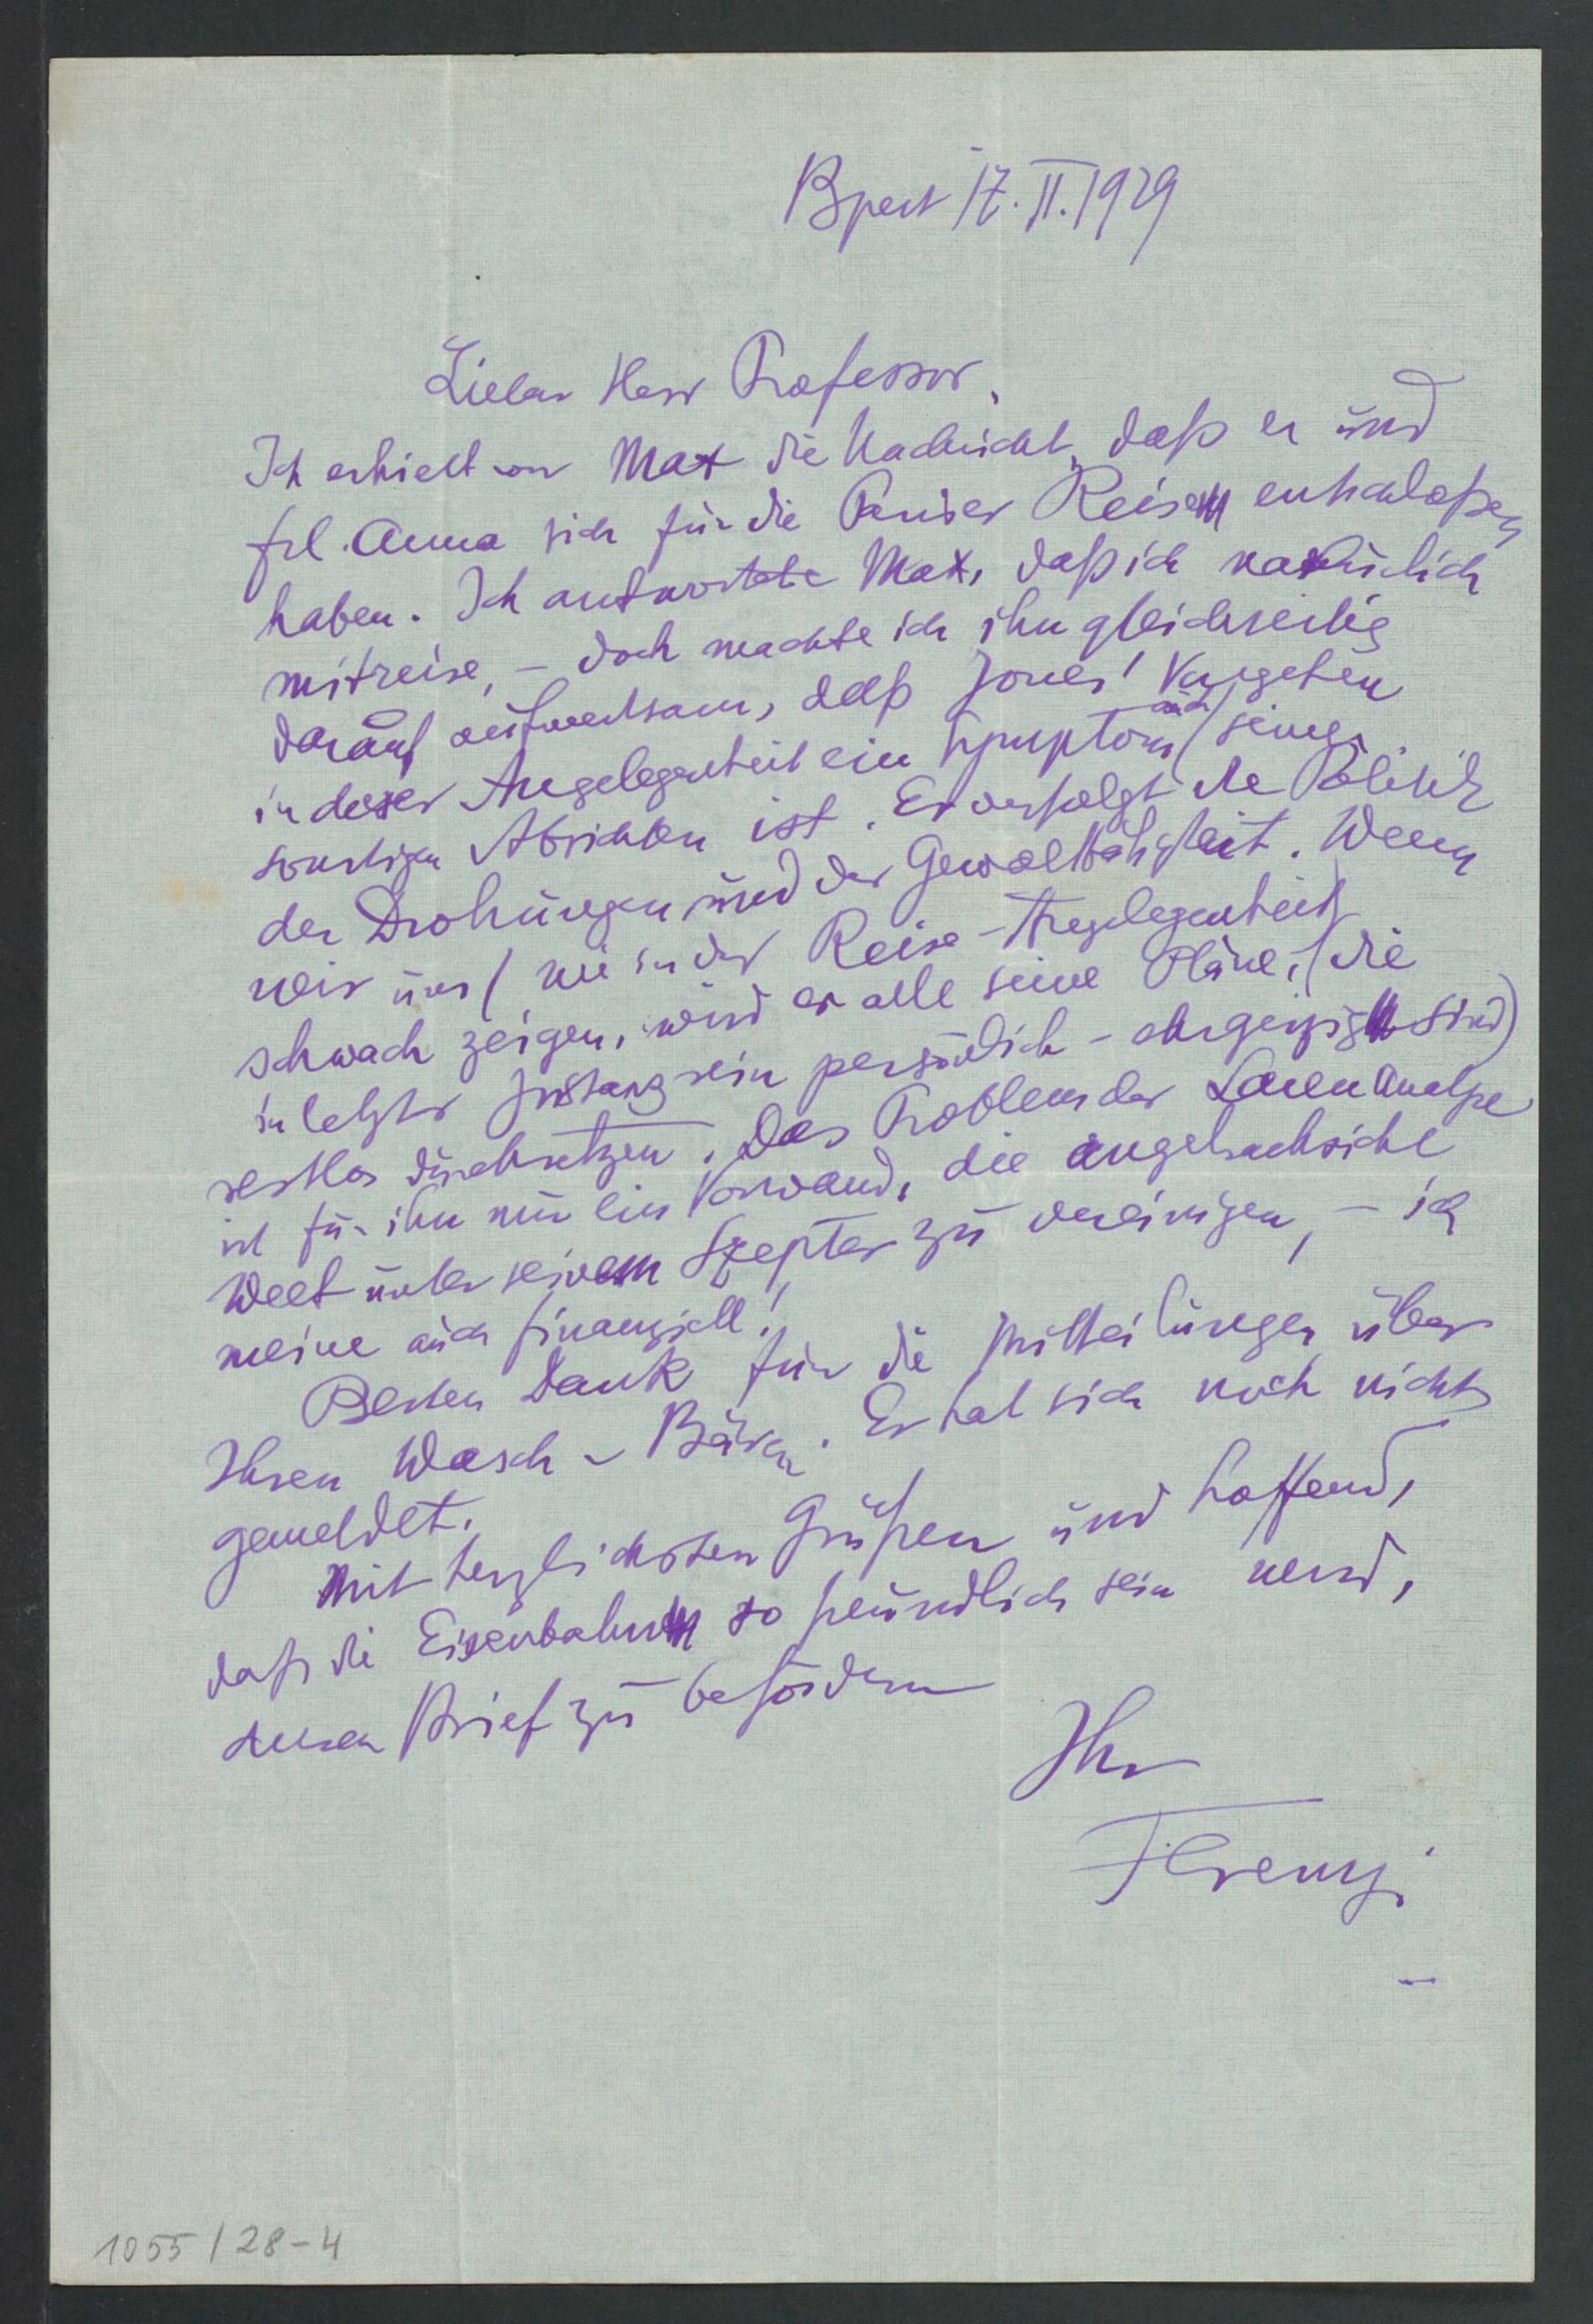 Bpest 17. II. 1929
Lieber Herr Professor,
Ich erhielt von Max die Nachricht, daß er und
Frl. Anna sich für die Pariser Reise entschloßen
haben. Ich antwortete Max, daß ich natürlich
mitreise, – doch machte ich ihn gleichzeitig
darauf aufmerksam, daß Jones' Vorgehen
in dieser Angelegenheit ein Symptom auch seiner
sonstigen Absichten ist. Er verfolgt die Politik
der Drohungen und der Gewalttätigkeit. Wenn
wir uns (wie in der Reise-Angelegenheit)
schwach zeigen, wird er alle seine Pläne, (die
in letzter Instanz rein persönlich-ehrgeizig sind)
restlos durchsetzen. Das Problem der Laienanalyse
ist für ihn nur ein Vorwand, die angelsächsische
Welt unter seinem Szepter zu vereinigen, – ich
meine auch finanziell!
Besten Dank für die Mitteilungen über
Ihren Wasch-Bären. Er hat sich noch nicht
gemeldet.
Mit herzlichsten Grüßen und hoffend,
daß die Eisenbahn so freundlich sein wird,
diesen Brief zu befördern
Ihr
Ferenczi
1055/28-4